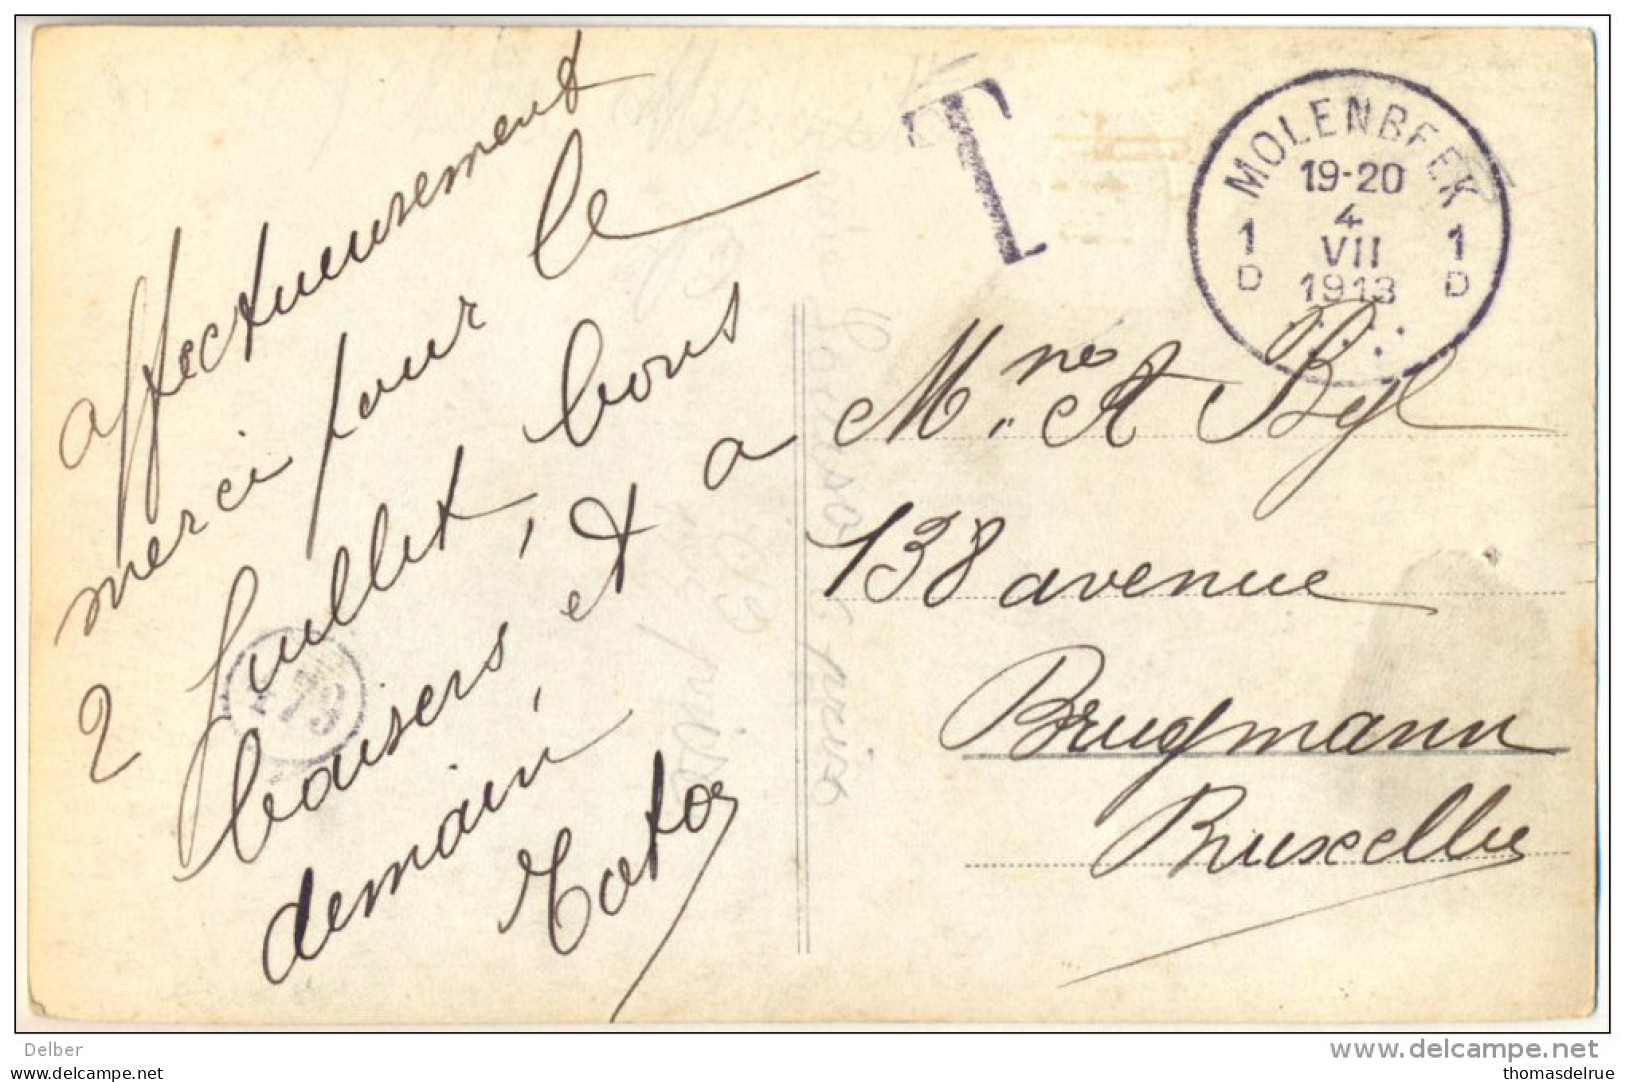 affectueusement
merci pour le
2 Juillet, bons
baisers, et a
demain,
Toto
T
MOLENBEEK
19-20
4
VII
1913
1 1
D D
Mme A Byl
138 avenue
Brugmann
Bruxelles
Delber
www.delcampe.net
www.delcampe.net
thomasdelrue